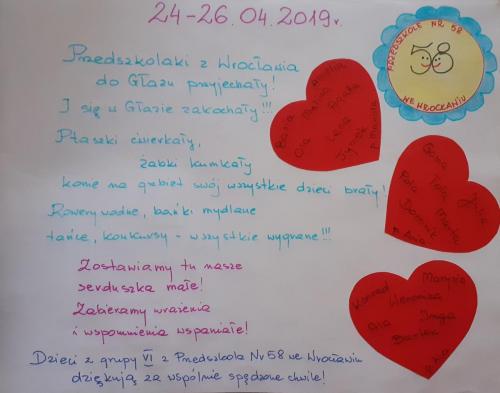 24-26.04.2019r.
PRZEDSZKOLE NR 58
58
WE WROCŁAWIU
Przedszkolaki z Wrocławia
do Głazu przyjechały!
I się w Głazie zakochały!!!
Ptaszki ćwierkały,
żabki kumkały
konie na grzbiet swój wszystkie dzieci brały!
Rowery wodne, bańki mydlane
tańce, konkursy - wszystkie wygrane!!!
Zostawiamy tu nasze
serduszka małe!
Zabieramy wrażenia
i wspomnienia wspaniałe!
Dzieci z grupy VI z Przedszkola Nr 58 we Wrocławiu
dziękują za wspólnie spędzone chwile!
Basia
Ola
Lena
p. Mariola
Pola
Dominik
Marta
p. Ania
Konrad
Marysia
Weronika
Ala
Iga
Bartek